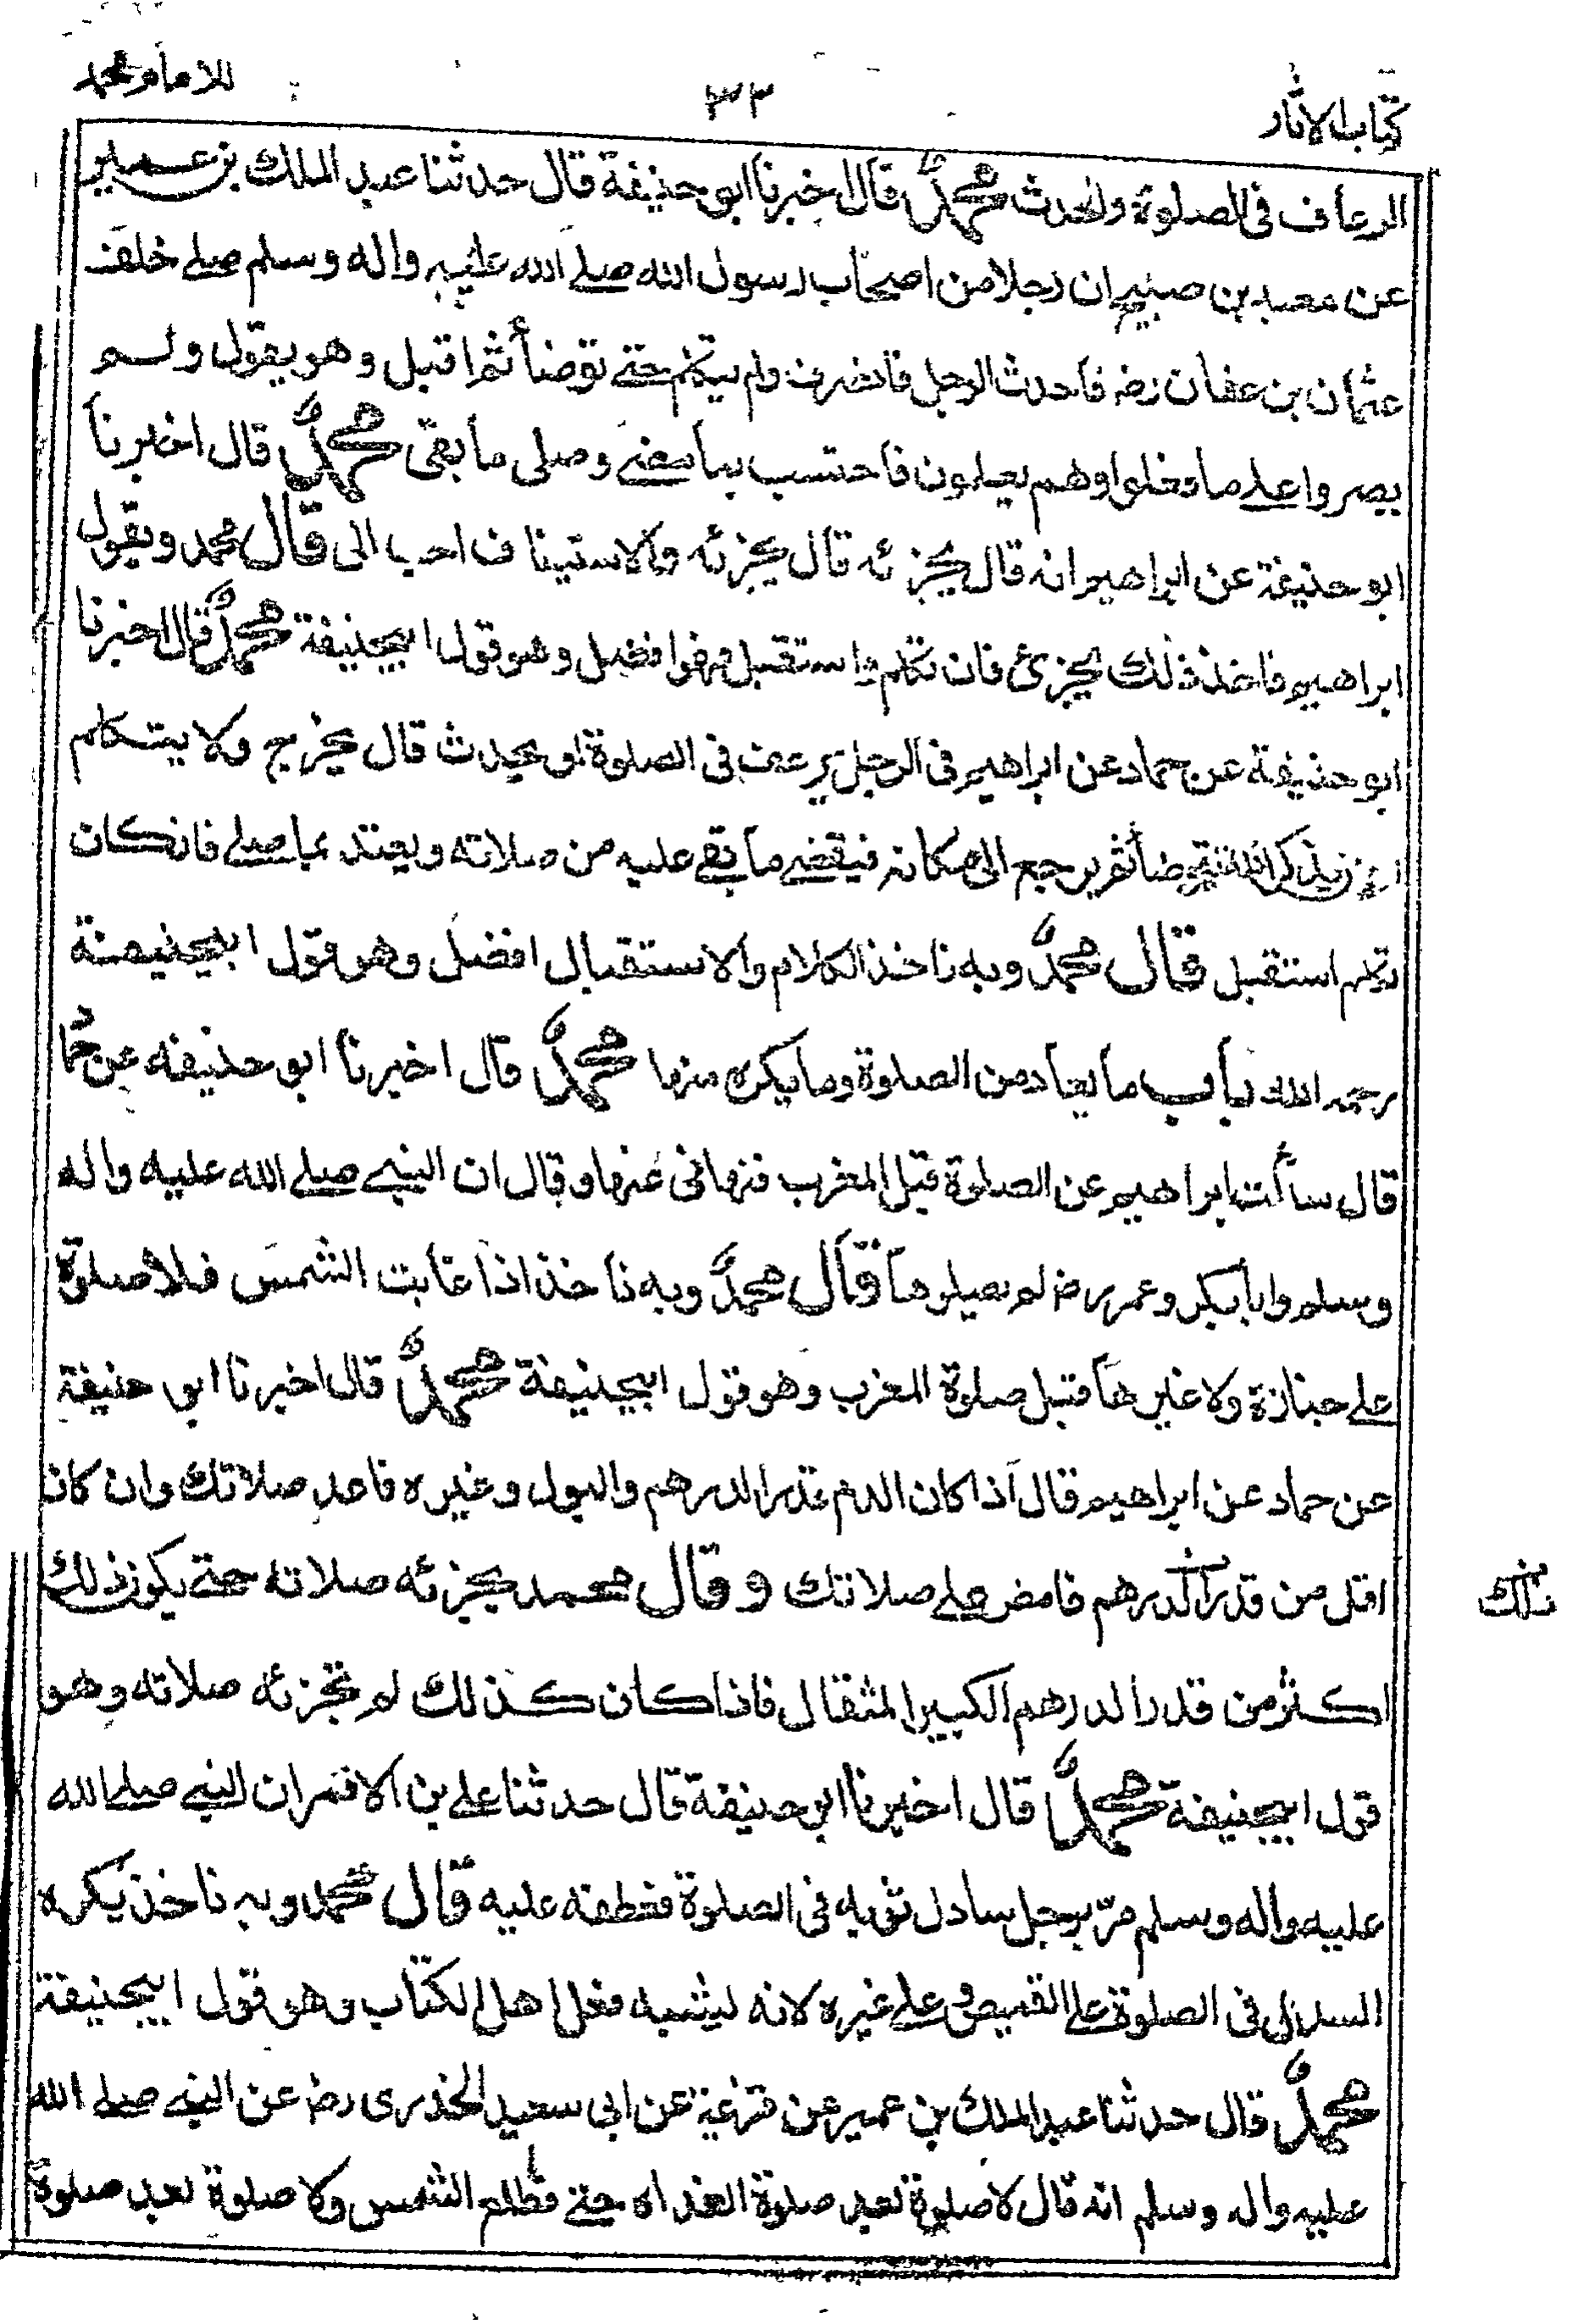 كتاب الاثار
٣٣
للامام محمد
الرعاف فى الصلوة والحدث محمد قال اخبرنا ابو حنيفة قال حدثنا عبد الملك بن عمير
عن معبد بن صبيح ان رجلا من اصحاب رسول الله صلے الله عليه واله وسلم صلے خلف
عثمان بن عفان رضہ فاحدث الرجل فانصرف ولم يتكلم حتے توضأ ثم اقبل وهو يقول ولم
يصروا علے ما فعلوا وهم يعلمون فاحتسب بما مضے وصلى ما بقى محمد قال اخبرنا
ابو حنيفة عن ابراهيم انه قال يجزئه قال يجزئه والاستيناف احب الى قال محمد وبقول
ابراهيم ناخذ ذلك يجزئ فان تكلم واستقبل فهوا فضل وهو قول ابيحنيفة محمد قال اخبرنا
ابو حنيفة عن حماد عن ابراهيم فى الرجل يرعف فى الصلوة او يحدث قال يخرج ولا يتكلم
الا ان يذكر الله ثم يتوضأ ثم يرجع الى مكانه فيقضے ما بقے عليه من صلاته ويعتد بما صلے فان كان
تكلم استقبل قال محمد وبه ناخذ الكلام والاستقبال افضل وهو قول ابيحنيفة
رحمه الله باب ما يعاد من الصلوة وما يكره منها محمد قال اخبرنا ابو حنيفه عن حما
قال سألت ابراهيم عن الصلوة قبل المغرب فنهانى عنها وقال ان النبے صلے الله عليه واله
وسلم وابابكر وعمر رضہ لم يصلوها قال محمد وبه ناخذ اذا غابت الشمس فلا صلوة
علے جنازة ولا غيرها قبل صلوة المغرب وهو قول ابيحنيفة محمد قال اخبرنا ابو حنيفة
عن حماد عن ابراهيم قال اذا كان الدم قدر الدرهم والبول وغيره فاعد صلاتك وان كان
اقل من قدر الدرهم فامض علے صلاتك وقال محمد يجزئه صلاته حتے يكون ذلك
ذلك
اكثر من قدر الدرهم الكبير المثقال فاذا كان كذلك لم تجزئه صلاته وهو
قول ابيحنيفة محمد قال اخبرنا ابو حنيفة قال حدثنا علے بن الاقمر ان النبے صلے الله
عليه واله وسلم مرّ برجل سادل ثوبه فى الصلوة فعطفه عليه قال محمد وبه ناخذ يكره
السدل فى الصلوة علے القميص و علے غيره لانه يشبه فعل اهل الكتاب وهو قول ابيحنيفة
محمد قال حدثنا عبد الملك بن عمير عن قزعة عن ابى سعيد الخدرى رضہ عن النبے صلے الله
عليه واله وسلم انه قال لا صلوة بعد صلوة الغداة حتے تطلع الشمس ولا صلوة بعد صلوة